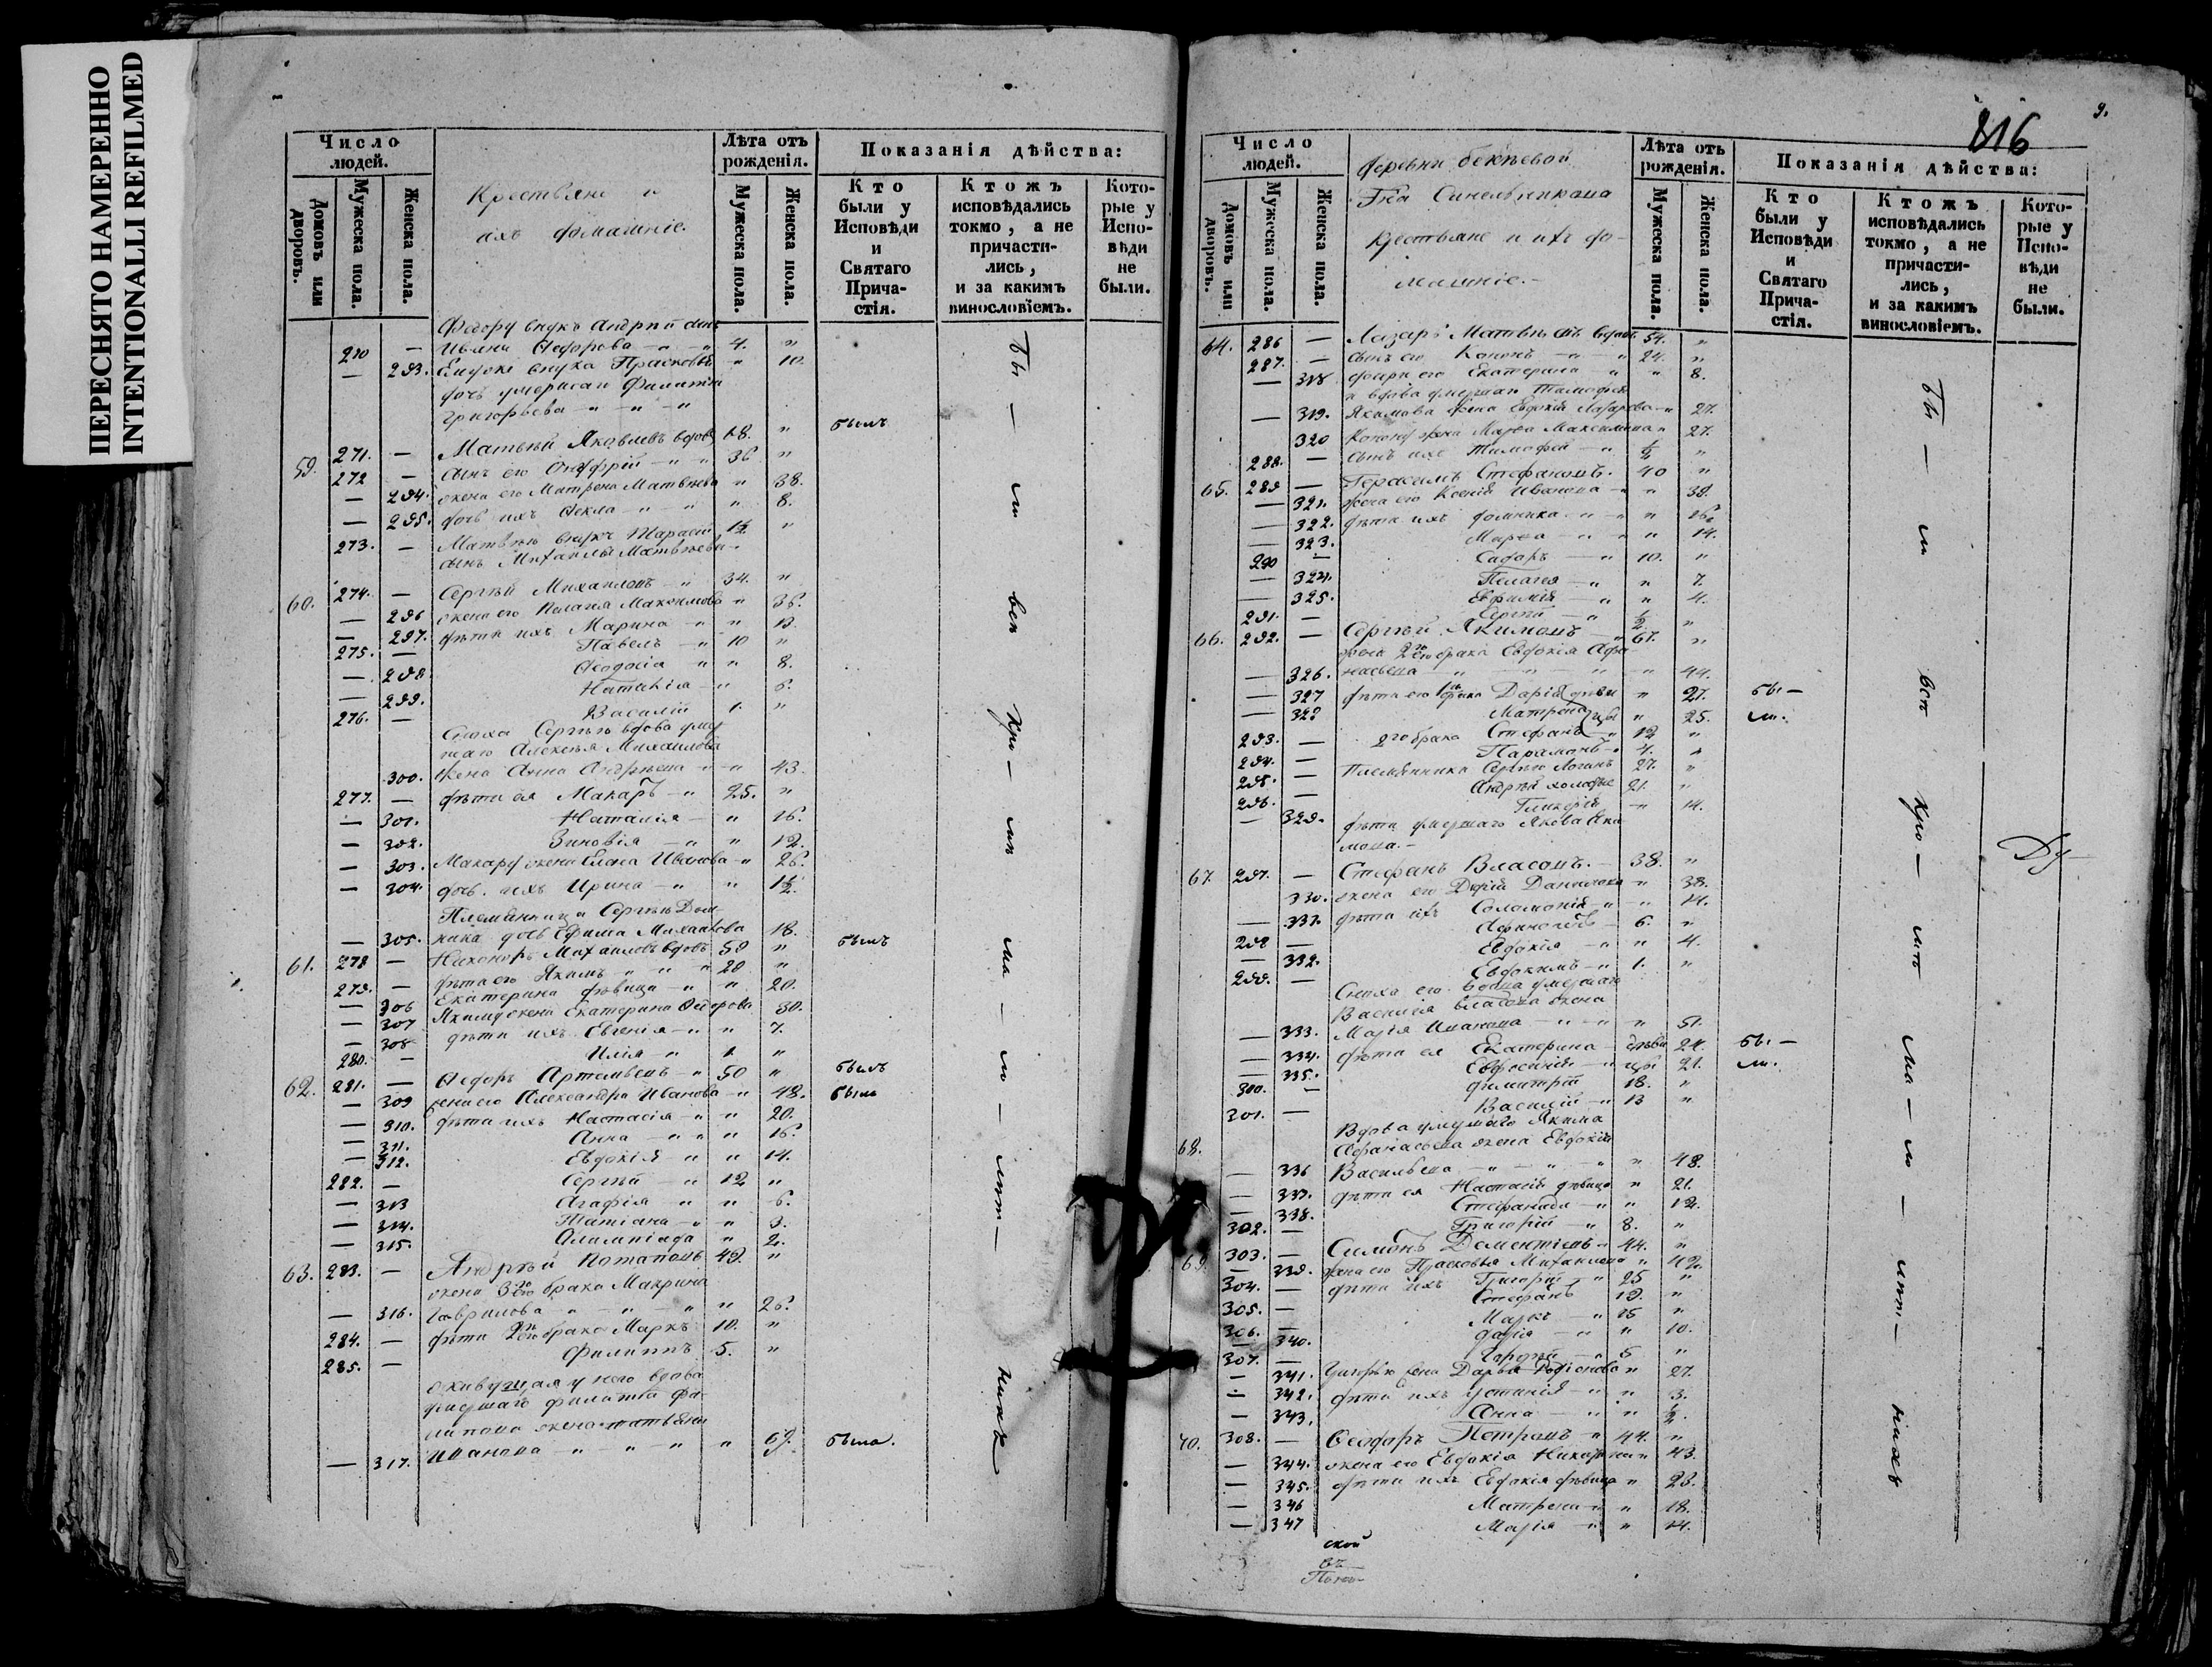 ПЕРЕСНЯТО НАМЕРЕННО
INTENTIONALLI REFILMED
Число людей.
Домовъ или дворовъ.
Мужеска пола.
Женска пола.
Крестьяне и
ихъ домашніе.
Лѣта отъ рожденія.
Мужеска пола.
Женска пола.
Показанія дѣйства:
Кто были у Исповѣди и Святаго Причастія.
Ктожъ исповѣдались токмо, а не причастились, и за какимъ винословіемъ.
Которые у Исповѣди не были.
Федору внукъ Андрей сынъ
270 — Ивана Федорова — " — " 4. "
— 293. внука Прасковья " 10.
дочь умершаго Филипа
Григорьева — " — " — "
59. 271. — Матвѣй Яковлевъ вдовъ 68. " былъ
272 — сынъ его Онуфрій — " — " 36 "
— 294. жена его Матрена Матвѣева " 38.
— 295. дочь ихъ Ѳекла — " — " " 8.
273. — Матвѣю внукъ Тарасій 1½ "
сынъ Михаила Матвѣева
60. 274. — Сергѣй Михаиловъ — " 34. "
— 296 жена его Пелагея Максимова " 36.
— 297. дѣти ихъ Марина — " " 13.
275. — Павелъ — " 10 "
— 298 Ѳеодосія " " 8.
— 299. Наталія — " " 6.
276. — Василій 1. "
Сноха Сергѣю вдова умер
шаго Алексѣя Михаилова
300. жена Анна Андрѣева — " — " 43.
277. — дѣти ея Макаръ — " 25. "
— 301. Наталія — " 16.
— 302. Зиновія — " " 12.
— 303. Макару жена Елена Иванова — " 26.
— 304. дочь ихъ Ирина — " " 1½.
Племянница Сергѣю Дом-
— 305. ника дочь Ефима Михаилова 18.
61. 278 — Никоноръ Михаиловъ вдовъ 59 " былъ
279. — дѣти его Якимъ " " " 29 "
— 306 Екатерина дѣвица — " " 20.
— 307 Якиму жена Екатерина Ѳедорова 30.
— 308 дѣти ихъ Евгенія — " " 7.
280. — Илія — " 1. "
62. 281. — Ѳедоръ Артемьевъ — " 50 " былъ
— 309 жена его Александра Иванова — " 48. была
— 310. дѣти ихъ Настасія — " " 20.
— 311. Анна — " " " 16.
— 312. Евдокія " " 14.
282. — Сергѣй — " 12 "
— 313 Агафія " " 6.
— 314. Татіана — " " 3.
— 315. Алимпіада " 2.
63. 283. — Андрѣй Потаповъ 49. "
жена 3го его брака Макрина
— 316. Гаврилова " — " — " " 26.
284. — дѣти 2го его брака Маркъ 10. "
285. — Филиппъ 5. "
живущая у него вдова
умершаго Филипа Фи-
липова жена Татьяна
— 317. Иванова " — " — " " 67. была.
Бы — ли всѣ Кро — мѣ ма — ло — лѣт — нихъ
816
9.
Число людей.
Домовъ или дворовъ.
Мужеска пола.
Женска пола.
Деревни
Гна Синельникова
крестьяне и ихъ до-
машніе. —
Лѣта отъ рожденія.
Мужеска пола.
Женска пола.
Показанія дѣйства:
Кто были у Исповѣди и Святаго Причастія.
Ктожъ исповѣдались токмо, а не причастились, и за какимъ винословіемъ.
Которые у Исповѣди не были.
64. 286 — Лазарь Матвѣевъ вдовъ 54. "
287. — сынъ его Кононъ — " — " 24. "
— 318 дочь его Екатерина — " " 8.
и вдова умершаго Тимофея
— 319. Якимова жена Евдокія Лазарева — " 27.
320 Конону жена Марѳа Максимова " 27.
288. — сынъ ихъ Тимофей — " ½ "
65. 289 — Герасимъ Стефановъ. 40 "
— 321. жена его Ксенія Иванова — " " 38.
— 322. дѣти ихъ Домника — " — " " 16.
— 323. Марѳа — " " " 14.
290 — Сидоръ — " 10. "
— 324. Пелагея — " " 7.
— 325. Евфимія — " " 4.
291. — Сергѣй — " ½ "
66. 292. — Сергѣй Якимовъ — " 67. "
жена 2го его брака Евдокія Афа
— 326. насьева " — " — " — " 44.
— 327 дѣти его 1го брака Дарія дѣви " 27. бы —
— 328 Матрена цы " 25. ли.
293. — 2го брака Стефанъ " 12 "
294. — Парамонъ " 4. "
295. — Племянники Сергѣю Логинъ 27. "
296. — Андрѣй холостые 21. "
— 329. Гликерія — " 14.
дѣти умершаго Якова Яки
мова. —
67. 297. — Стефанъ Власовъ. — 38. "
330. жена его Дарія Данилова " 38.
— 331. дѣти ихъ Соломонія — " — " 14.
298 — Афиногенъ — " 6. "
— 332. Евдокія — " " 4.
299. — Евдокимъ — " 1. "
Сноха его вдова умершаго
Василія Власова жена
— 333. Марія Иванова — " — " " 51.
— 334. дѣти ея Екатерина — дѣви 24. бы —
— 335. Евфросинія — " цы 21. ли.
300. — Димитрій 18. "
301. — Василій — " 13 "
68. Вдова умершаго Якима
Афанасьева жена Евдокія
— 336 Васильева — " — " — " " 48.
— 337. дѣти ея Настасія дѣвица " 21.
— 338. Стефанида — " " 12.
302. — Григорій — " 8. "
69. 303. — Симонъ Дементьевъ — " 44. "
— 339. жена его Прасковья Михаилова " 42.
304. — дѣти ихъ Григорій — " 25 "
305. — Стефанъ 19. "
306. — Маркъ — " 15 "
— 340. Дарія — " " 10.
307. — Гордѣй — " 5 "
— 341. Григорью жена Дарья Родіонова " 27.
— 342. дѣти ихъ Устинія — " " 3.
— 343. Анна — " " ½.
70. 308. — Ѳеодоръ Петровъ — " 44. "
— 344. жена его Евдокія " 43.
— 345. дѣти ихъ Евдокія дѣвица " 23.
— 346 Матрена — " " 18.
— 347 Марія — " " 14.
Бы — ли всѣ Кро — мѣ ма — ло — лѣт — нихъ
Ду —
ской